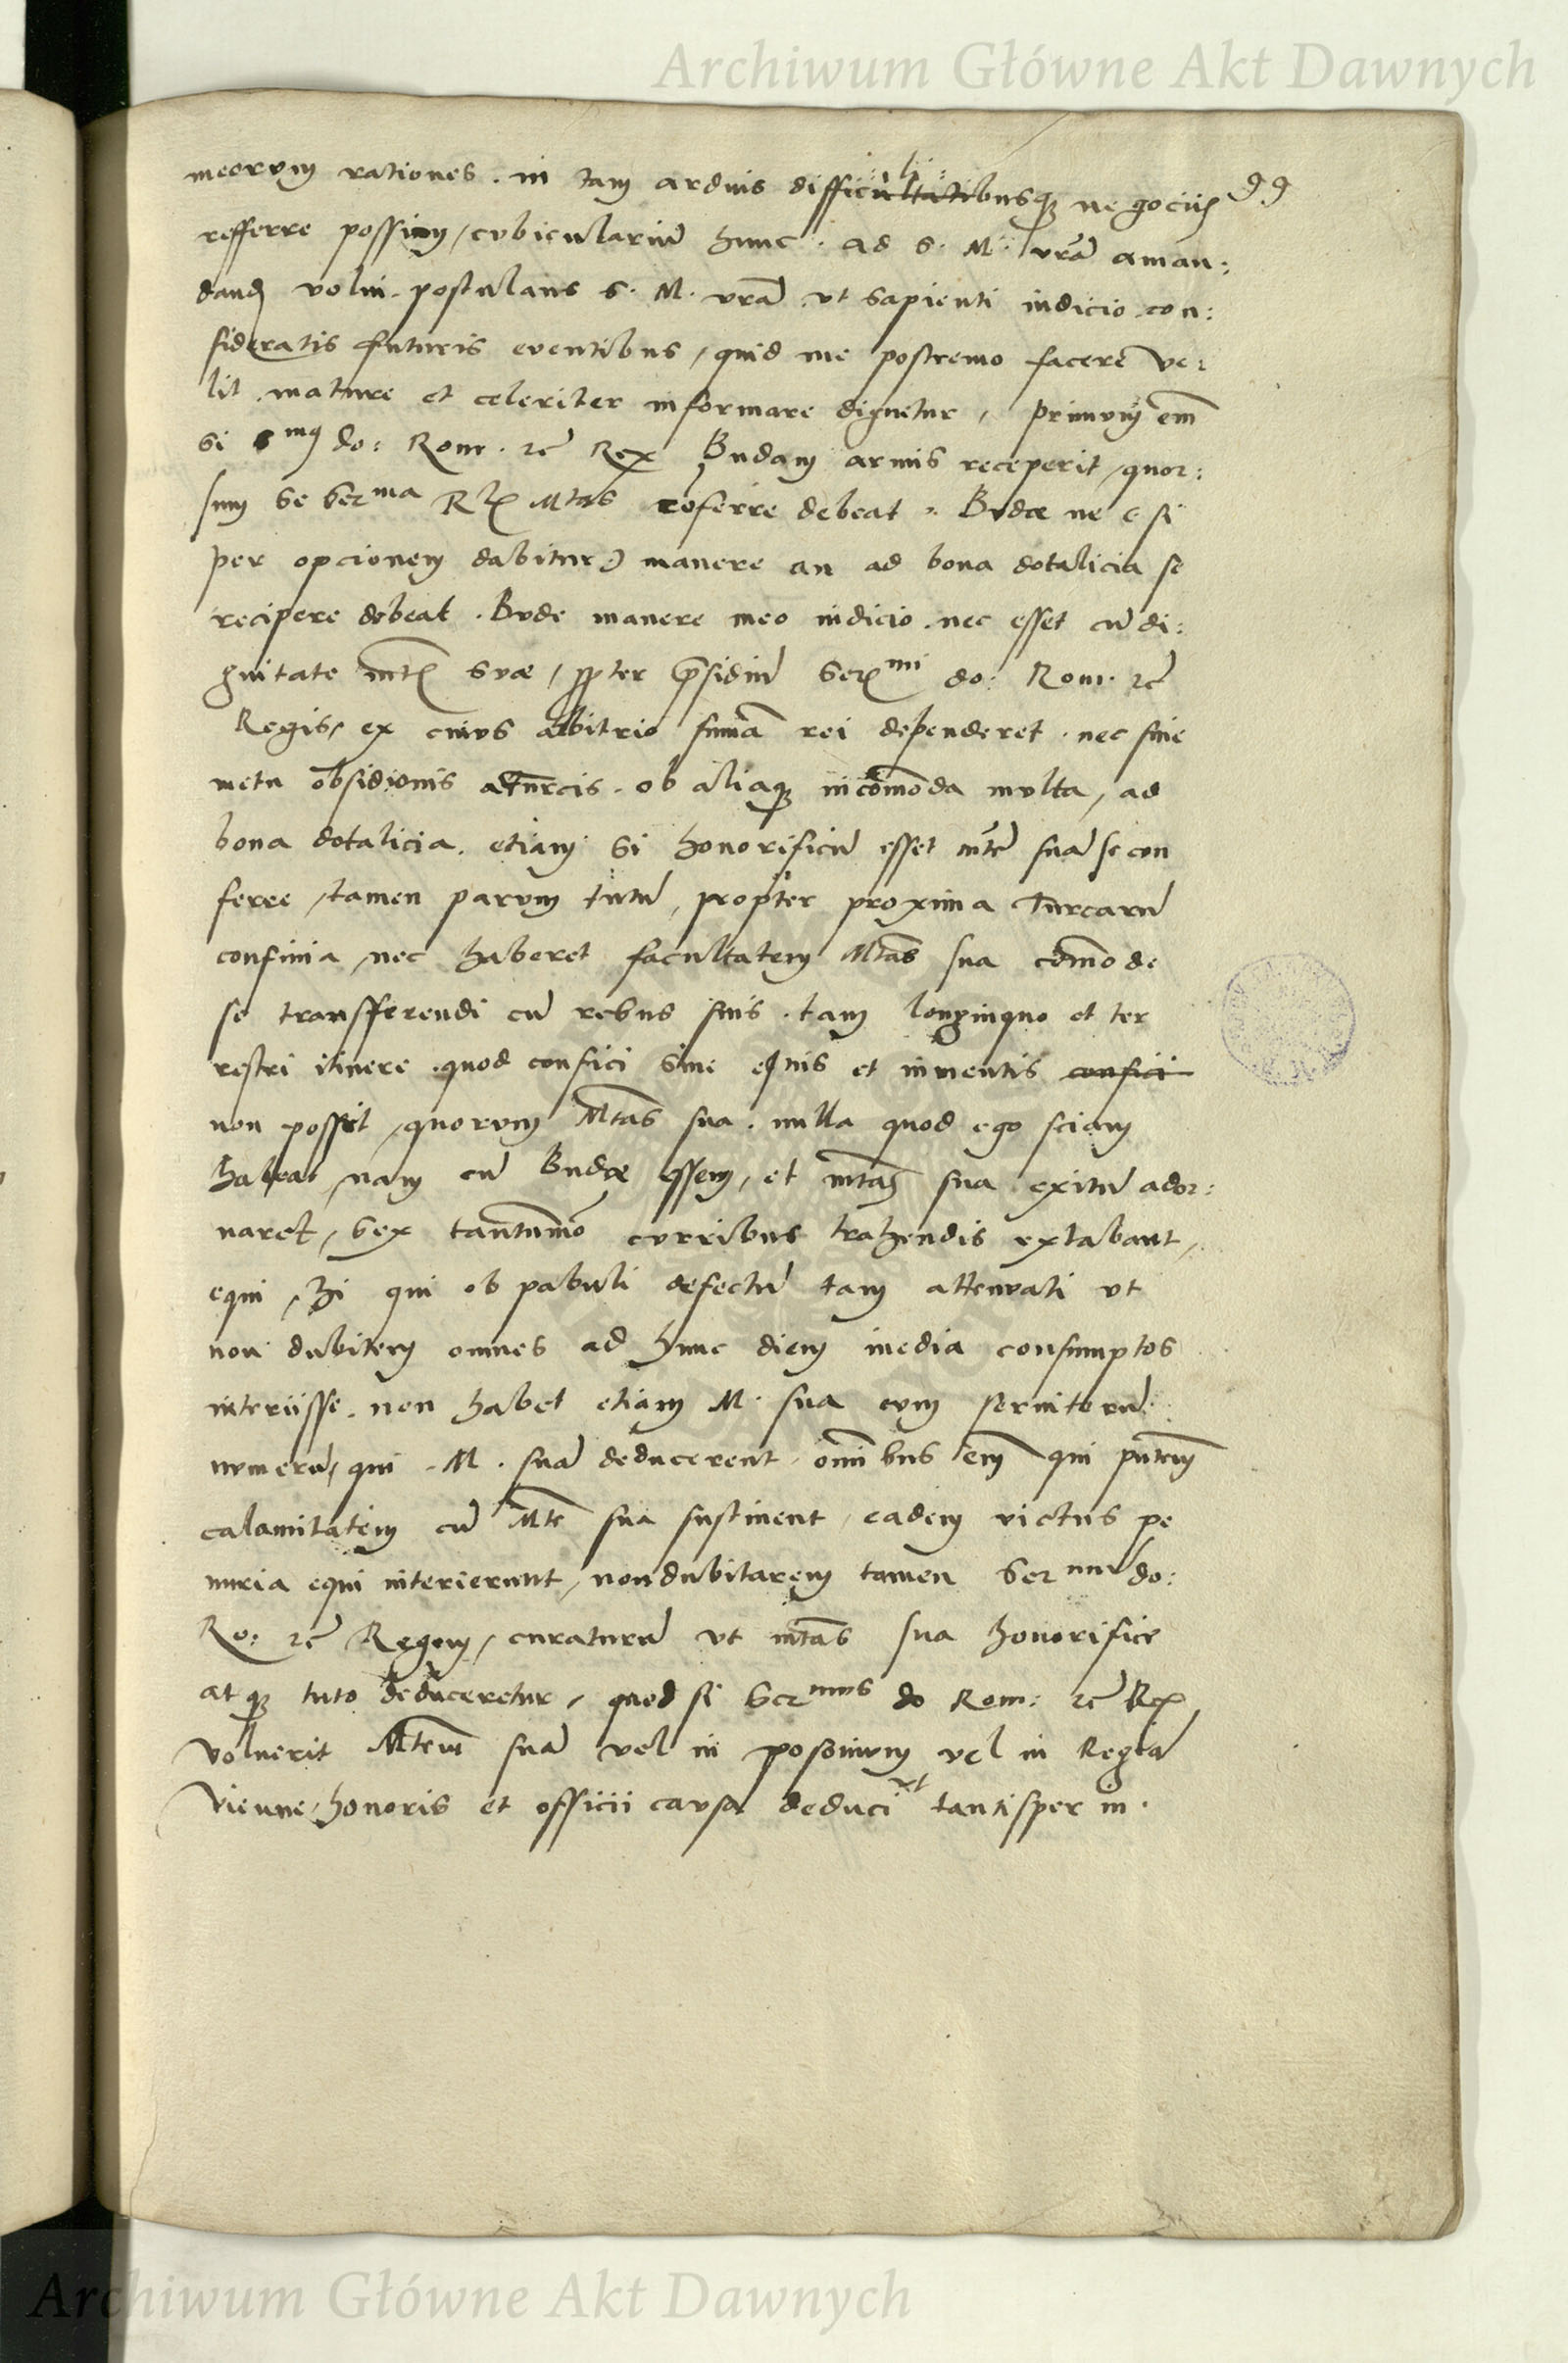 Archiwum Główne Akt Dawnych
99
meorum rationes. in tam arduis difficultatibusq; negociis
li
refferre possim, cubicularium hunc. ad S. M. vrā aman:
dand volui. postulans S. M. vrā vt sapienti iudicio con:
sideratis futuris eventibus, quid me postremo facere ve:
lit mature et celeriter informare dignetur, primum em̄
si do: Rom. rc̄ Rex Budam armis receperit, quor:
sum se Serma Mtas cōferre debeat. Budæ ne (si
per opcionem dabitur) manere an ad bona dotalicia se
recipere debeat. Bude manere meo iudicio nec esset cū di:
gnitate suæ, ꝓpter p̄sidiū Serni do: Rom. rc̄
Regis, ex cuius arbitrio suma rei dependeret. nec sine
metu obsidionis a Turcis. ob aliaq; incōmoda multa, ad
bona dotalicia. etiam si honorificū esset mtē suā se con
ferre, tamen parum tutū, propter proxima Turcarū
confinia, nec haberet facultatem Mtās sua cōmode
se transfferendi cū rebus suis. tam longinquo et ter
restri itinere quod confici sine equis et iumentis confici
non possit, quorum Mtās sua. nulla quod ego sciam
habeat, nam cū Budæ essem, et mtās sua exitū ador:
naret, sex tantūmō curribus trahendis extabant,
equi, hi qui ob pabuli defectū tam attenuati vt
non dubitem omnes ad hunc diem inedia consumptos
interiisse. non habet etiam M. sua eum servitorū
numerū, qui M. suā deducerent. omībus em̄ qui
calamitatem cū Mtē sua sustinent, eadem victus pe
nuria equi interierunt, non dubitarem tamen Sernu do:
Ro: rc̄ Regem, curaturū vt mtās sua honorifice
atq; tuto deduceretur, quod si Sernus do Rom: rc̄ Rex
voluerit Mtem suā vel in posonium vel in Regiā
Vienne, honoris et officii causa deduci tantisper in.
vt
Archiwum Główne Akt Dawnych